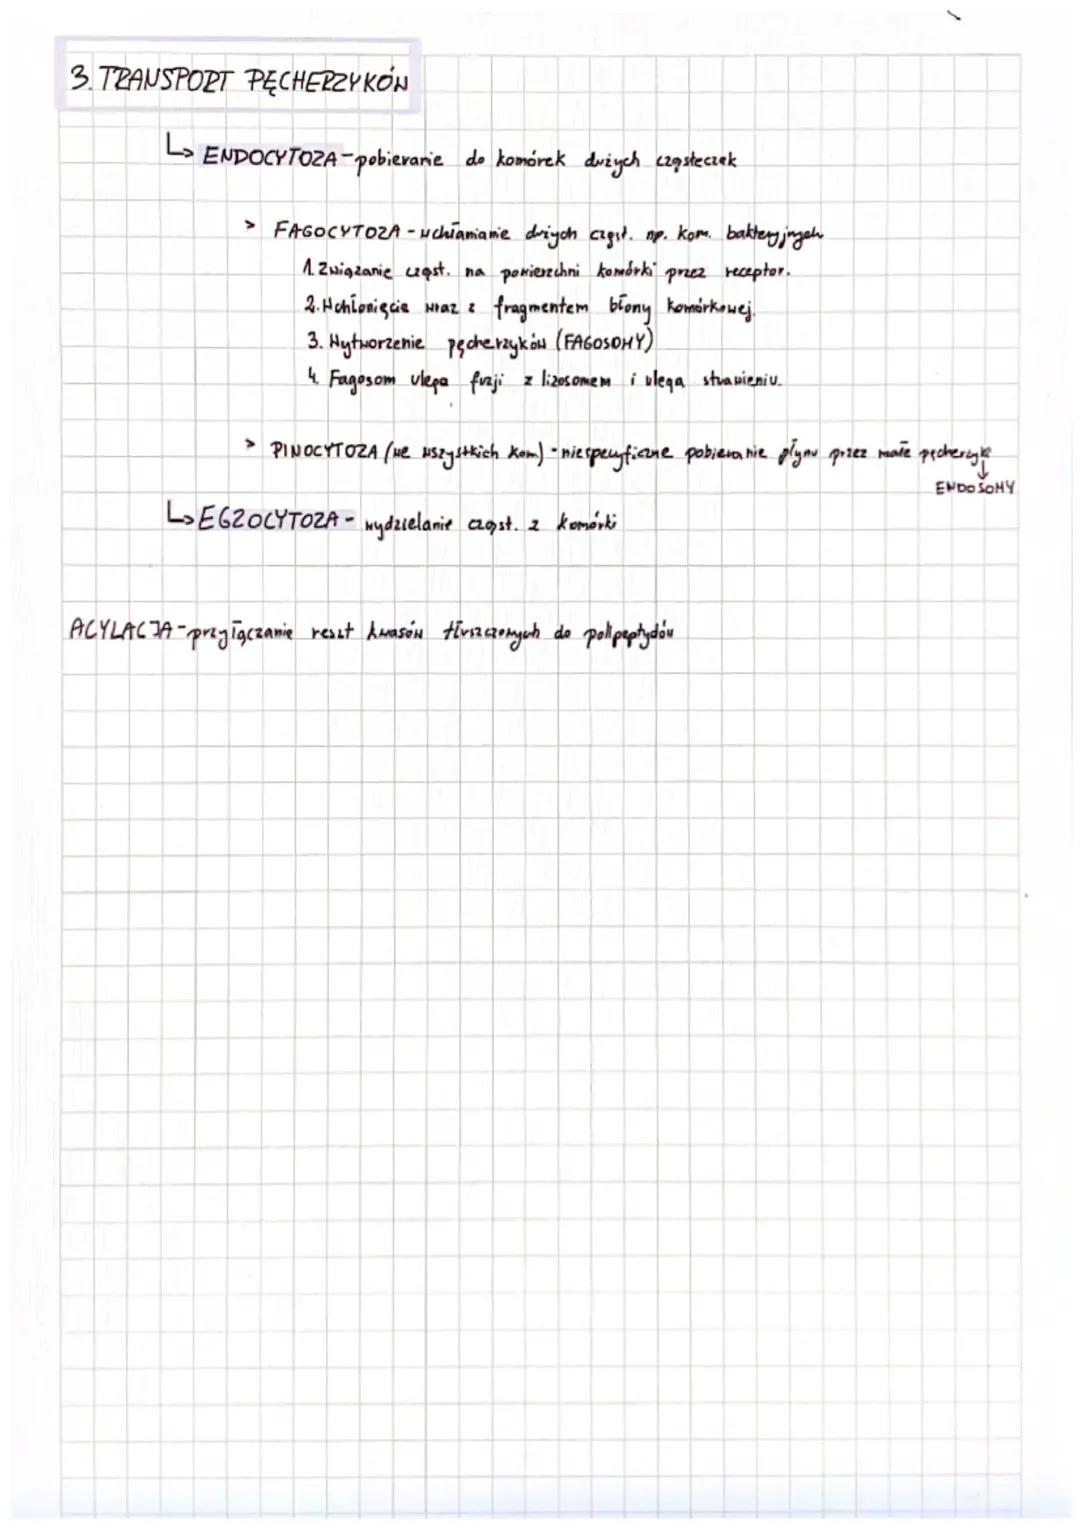 3. TRANSPORT PĘCHERZYKÓW
↳ ENDOCYTOZA - pobieranie do komórek dużych cząsteczek
> FAGOCYTOZA - wchłanianie dużych cząst. np. kom. bakteryjnych
1. Związanie cząst. na powierzchni komórki przez receptor.
2. Wchłonięcie wraz z fragmentem błony komórkowej.
3. Wytworzenie pęcherzyków (FAGOSOMY)
4. Fagosom ulega fuzji z lizosomem i ulega strawieniu.
> PINOCYTOZA (we wszystkich kom) - niespecyficzne pobieranie płynu przez małe pęcherzyki
↓
ENDOSOMY
↳ EGZOCYTOZA - wydzielanie cząst. z komórki
ACYLACJA - przyłączanie reszt kwasów tłuszczowych do polipeptydów